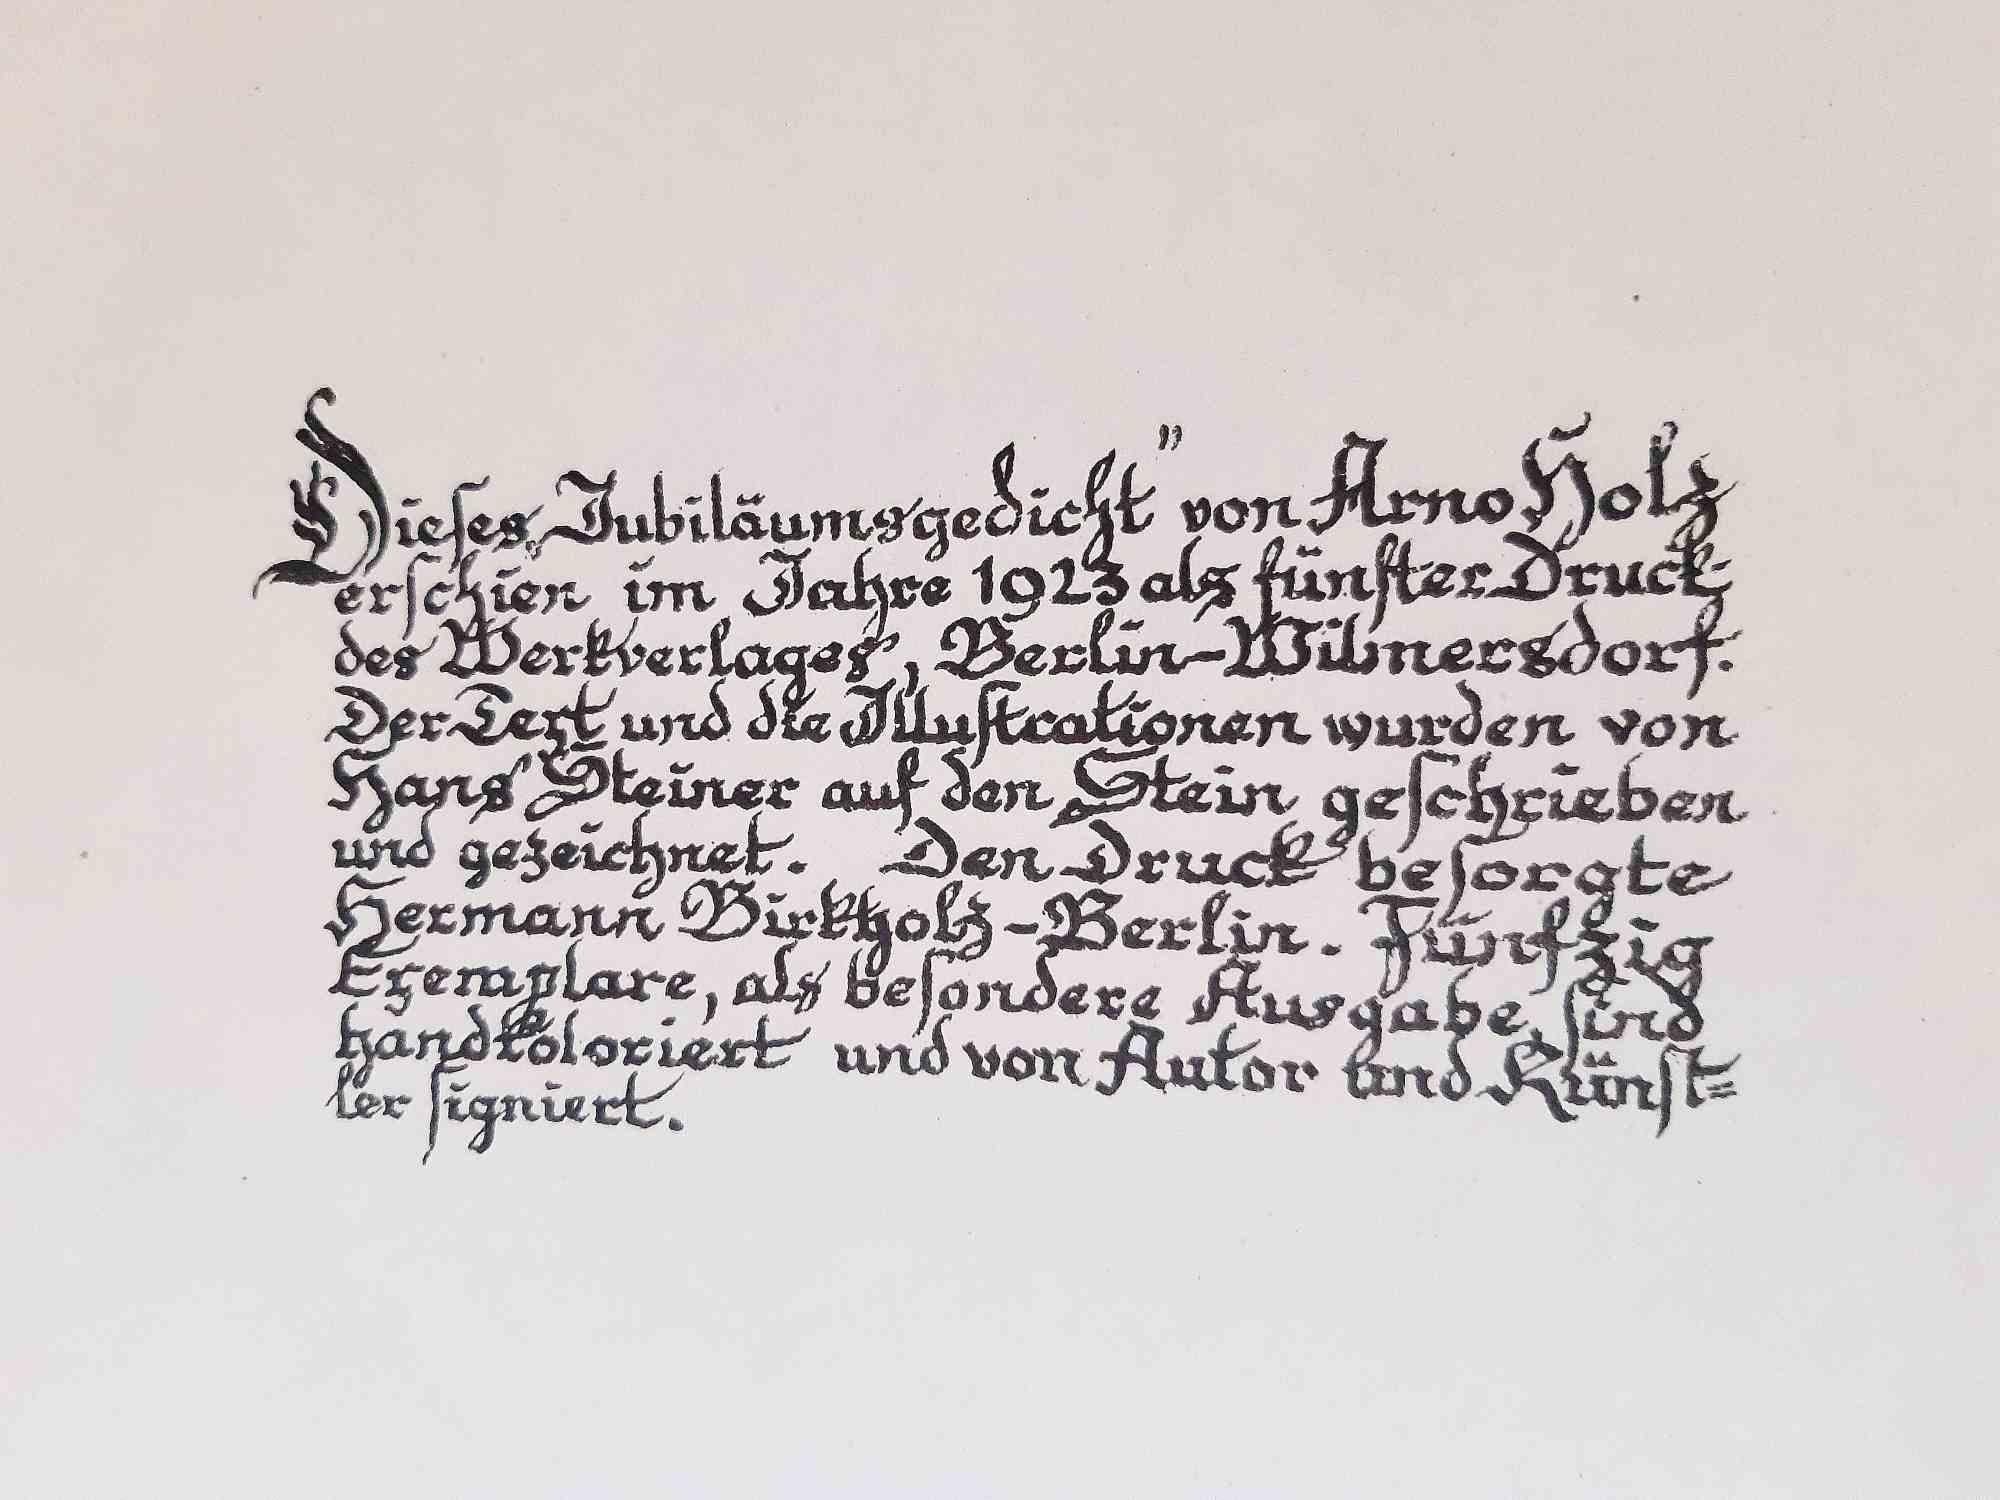 Dieses „Jubiläumsgedicht” von Arno Holz
erschien im Jahre 1923 als fünfter Druck
des Werkverlages, Berlin-Wilmersdorf.
Der Text und die Illustrationen wurden von
Hans Steiner auf den Stein geschrieben
und gezeichnet. Den Druck besorgte
Hermann Birkholz-Berlin. Fünfzig
Exemplare, als besondere Ausgabe, sind
handkoloriert und von Autor und Künst=
ler signiert.